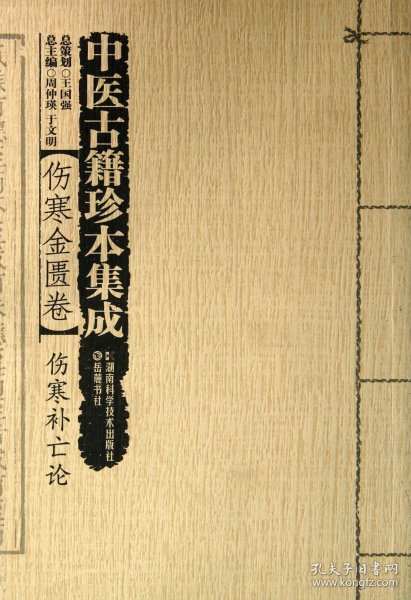 中医古籍珍本集成
总策划○王国强
总主编○周仲瑛 于文明
【伤寒金匮卷】
伤寒补亡论
湖南科学技术出版社
岳麓书社
孔夫子旧书网
www.kongfz.com